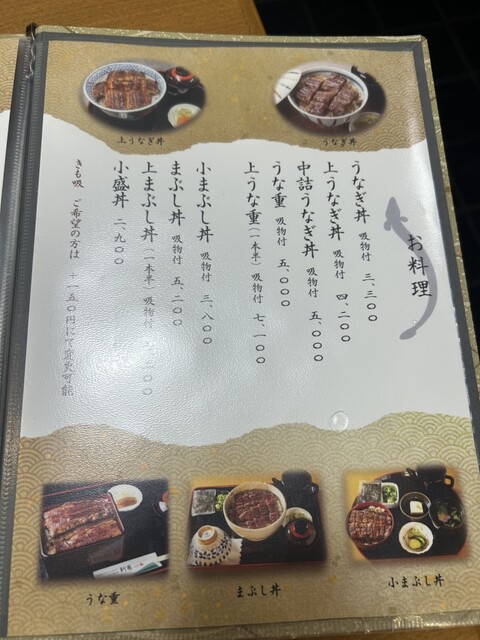 上うなぎ丼
うなぎ丼
お料理
うなぎ丼 吸物付 三、三〇〇
上うなぎ丼 吸物付 四、二〇〇
中詰うなぎ丼 吸物付 五、〇〇〇
うな重 吸物付 五、〇〇〇
上うな重(一本半) 吸物付 七、一〇〇
小まぶし丼 吸物付 三、八〇〇
まぶし丼 吸物付 五、二〇〇
上まぶし丼(一本半) 吸物付 、二〇〇
小盛丼 二、九〇〇
きも吸 ご希望の方は +一五〇円にて変更可能
うな重
まぶし丼
小まぶし丼